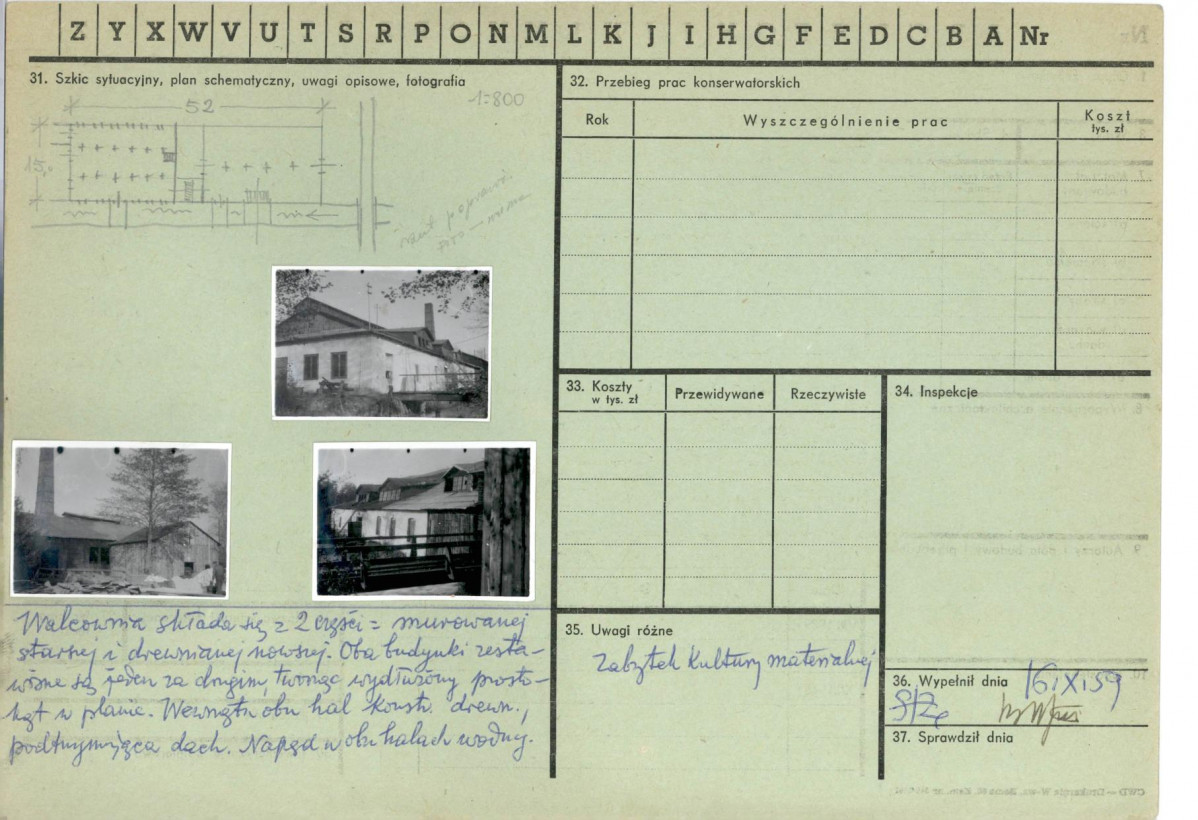 Z Y X W V U T S R P O N M L K J I H G F E D C B A Nr
31. Szkic sytuacyjny, plan schematyczny, uwagi opisowe, fotografia
1=800
52
15,0
rzut poprawić
Walcownia składa się z 2 części = murowanej
starszej i drewnianej nowszej. Oba budynki zesta-
wione są jeden za drugim, tworząc wydłużony prosto-
kąt w planie. Wewnątrz obu hal konstr. drewn.,
podtrzymująca dach. Napęd w obu halach wodny.
32. Przebieg prac konserwatorskich
Rok
Wyszczególnienie prac
Koszt
tys. zł
33. Koszty
w tys. zł
Przewidywane
Rzeczywiste
34. Inspekcje
35. Uwagi różne
Zabytek kultury materialnej
36. Wypełnił dnia 16 XI 59
37. Sprawdził dnia